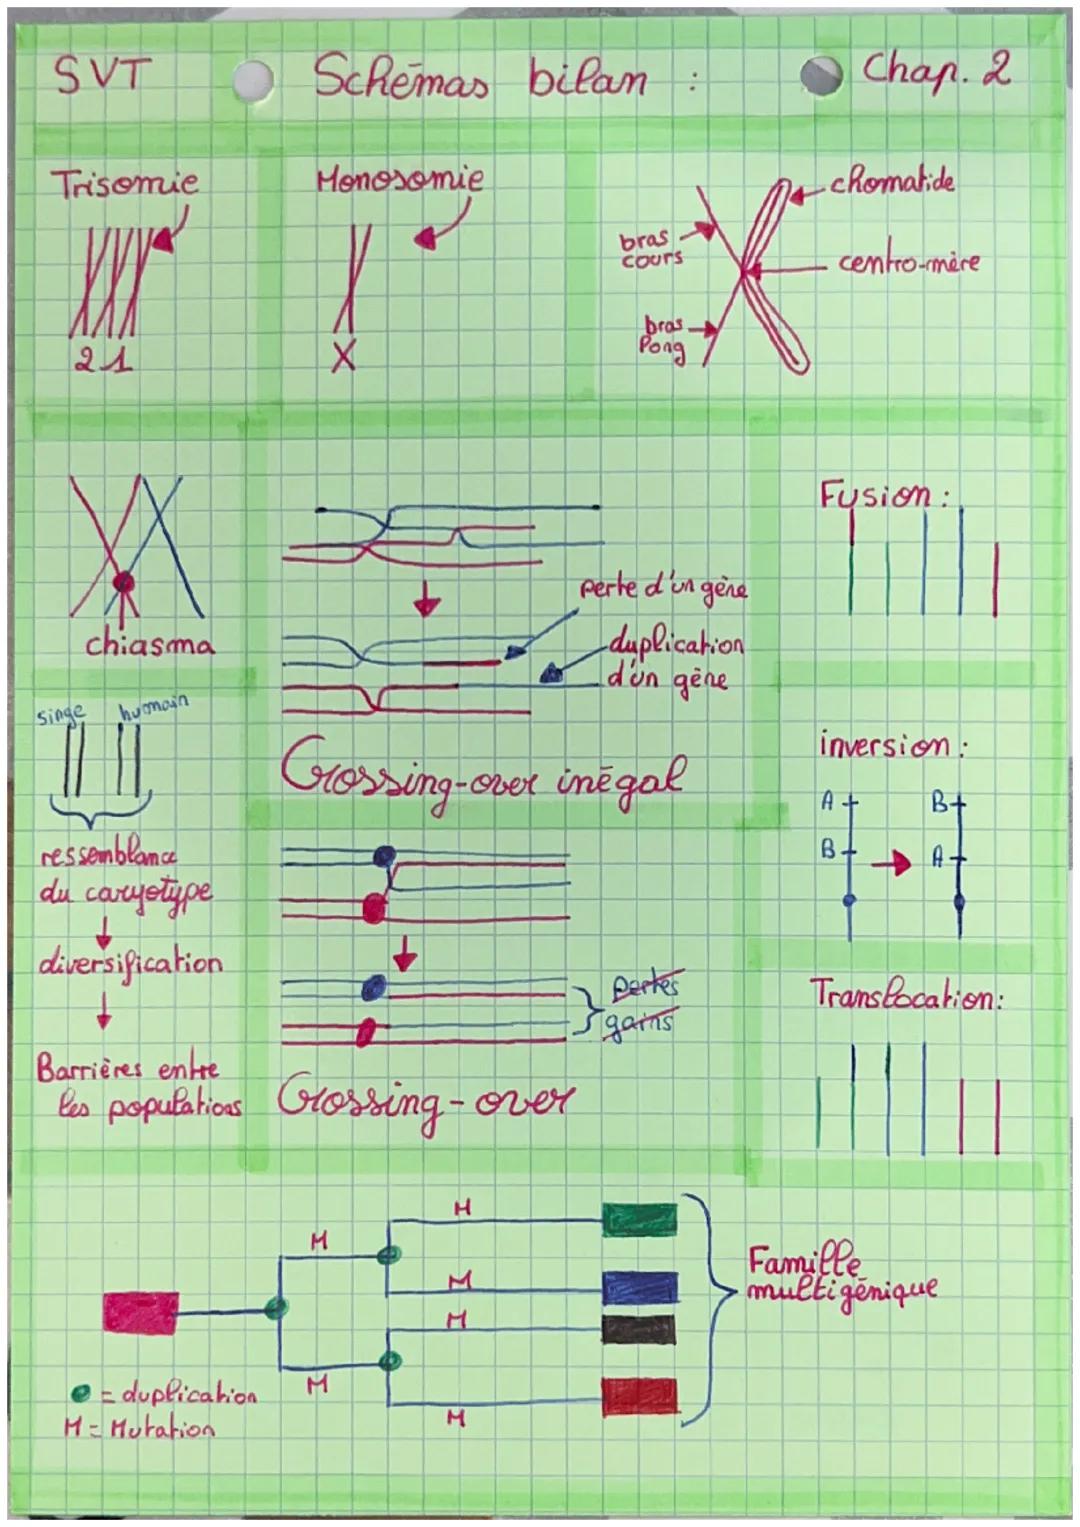 SVT
Schémas bilan :
Chap. 2
Trisomie
21
Monosomie
X
chomatide
bras
cours
centro-mère
bras
long
chiasma
perte d'un gène
duplication
d'un gène
Crossing-over inégal
Fusion :
singe humain
ressemblance
du caryotype
diversification
Barrières entre
les populations
pertes
gains
Crossing-over
inversion :
A B
B A
Translocation:
M
M
M
M
M
M
Famille
multigénique
= duplication
M = Mutation